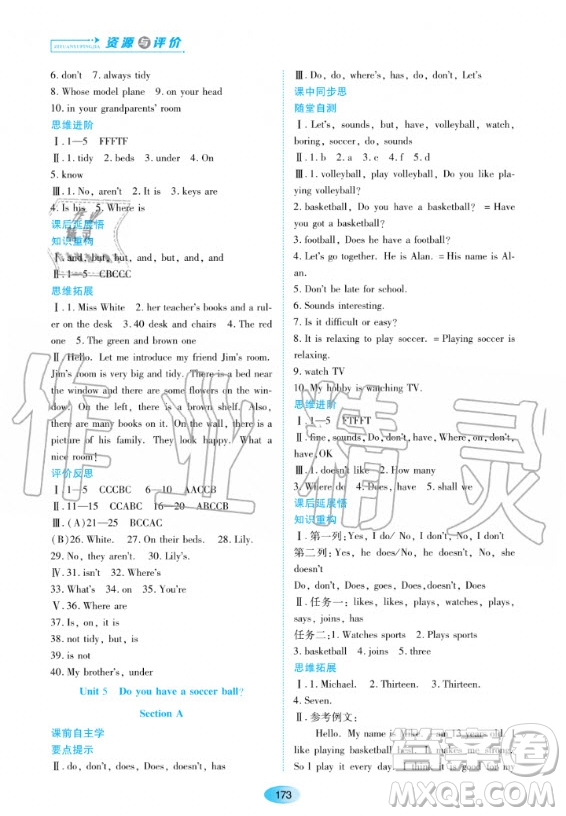 资源与评价
6. don't 7. always tidy
8. Whose model plane 9. on your head
10. in your grandparents' room
思维进阶
Ⅰ. 1—5 FFFTF
Ⅱ. 1. tidy 2. beds 3. under 4. On
5. know
Ⅲ. 1. No, aren't 2. It is
4. Is his 5. Where is
课后延展悟
知识重构
Ⅰ. and, but, but, and, but, and, and
Ⅱ. 1—5 CBCCC
思维拓展
Ⅰ. 1. Miss White 2. her teacher's books and a rul-
er on the desk 3. 40 desk and chairs 4. The red
one 5. The green and brown one
Ⅱ. Hello. Let me introduce my friend Jim's room.
Jim's room is very big and tidy. There is a bed near
the window and there are some flowers on the win-
dow! Behind the bed there is a bookcase. Also,
there are many books on it. On the wall, there is a
picture of his family. They look happy. What a
nice room!
评价反思
Ⅰ. 1—5 CCCBC 6—10 AACCB
Ⅱ. 11—15 16—20 ACBCB
Ⅲ. (A)21—25 BCCAC
(B)26. White. 27. On their beds. 28. Lily's.
29. No, they aren't. 30. Lily's.
Ⅳ. 31. isn't 32. Where's
33. What's 34. on 35. an
Ⅴ. 36. Where are
37. Is, on, it
38. not tidy, but, is
39. is
40. My brother's, under
Unit 5 Do you have a soccer ball?
Section A
课前自主学
要点提示
Ⅱ. do, don't, does, Does, does, doesn't
Ⅲ. Do, do, where's, has, do, don't, Let's
课中同步思
随堂自测
Ⅰ. Let's, sounds, but, have, volleyball, watch,
boring, soccer, do, difficult
Ⅱ. 1. c 2. d 3. b 4. a
Ⅲ. 1. volleyball, play volleyball, Do you like pla-
ying volleyball?
2. basketball, Do you have a basketball? = Have
you got a basketball?
3. football, Does he have a football?
4. Let's go together. He is Alan. =His name is Al-
an.
5. Don't be late for school.
6. Sounds interesting.
7. Is it difficult or easy?
8. It is relaxing to play soccer. = Playing soccer is
relaxing.
9. watch TV
10. My hobby is watching TV.
思维进阶
Ⅰ. 1—5 FTFFT
Ⅱ. fine, sounds, Do, have, Where, on, don't,
have, OK
Ⅲ. 1. doesn't like 2. How many
3. Where do 4. Does, have 5. shall we
课后延展悟
知识重构
Ⅰ. 第一列: Yes, I do/ No, I don't
第二列: Yes, he does/No, he doesn't, No, she
doesn't
Do, don't, Does, goes, Does, doesn't, Does
Ⅱ. 任务一: likes, likes, plays, watches, plays,
says, joins, has
任务二: 1. Watches sports 2. plays sports
3. basketball 4. play 5. three
思维拓展
Ⅰ. 1. Michael. 2. Thirteen. 3. Thirteen.
4. Seven.
Ⅱ. 参考例文:
Hello. My name is I am 13 years old. I
like playing basketball best. It makes me strong.
So I play it every day. I think it is good for my
173
作业精灵
答案圈